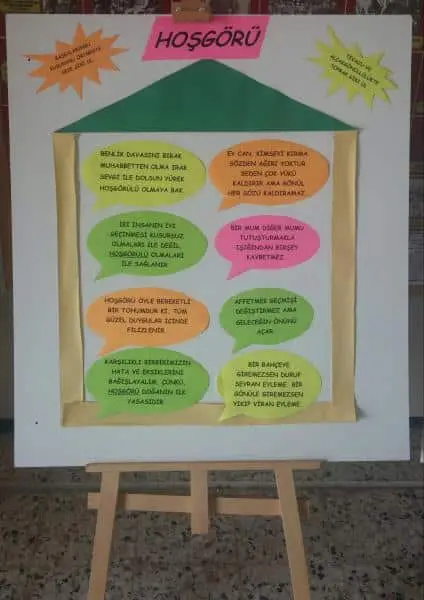 HOŞGÖRÜ
BAŞKALARININ
KUSURUNU ÖRTMEKTE
GECE GİBİ OL
TEVAZU VE
ALÇAKGÖNÜLLÜLÜKTE
TOPRAK GİBİ OL
BENLİK DAVASINI BIRAK
MUHABBETTEN OLMA IRAK
SEVGİ İLE DOLSUN YÜREK
HOŞGÖRÜLÜ OLMAYA BAK.
EY CAN, KİMSEYİ KIRMA
SÖZDEN AĞIRI YOKTUR
BEDEN ÇOK YÜKÜ
KALDIRIR AMA GÖNÜL
HER SÖZÜ KALDIRAMAZ.
İKİ İNSANIN İYİ
GEÇİNMESİ KUSURSUZ
OLMALARI İLE DEĞİL,
HOŞGÖRÜLÜ OLMALARI
İLE SAĞLANIR
BİR MUM DİĞER MUMU
TUTUŞTURMAKLA
IŞIĞINDAN BİRŞEY
KAYBETMEZ.
HOŞGÖRÜ ÖYLE BEREKETLİ
BİR TOHUMDUR Kİ, TÜM
GÜZEL DUYGULAR İÇİNDE
FİLİZLENİR
AFFETMEK GEÇMİŞİ
DEĞİŞTİRMEZ AMA
GELECEĞİN ÖNÜNÜ
AÇAR
KARŞILIKLI BİRBİRİMİZİN
HATA VE EKSİKLERİNİ
BAĞIŞLAYALIM. ÇÜNKÜ,
HOŞGÖRÜ DOĞANIN İLK
YASASIDIR
BİR BAHÇEYE
GİREMEZSEN DURUP
SEYRAN EYLEME. BİR
GÖNÜLE GİREMEZSEN
YIKIP VİRAN EYLEME.